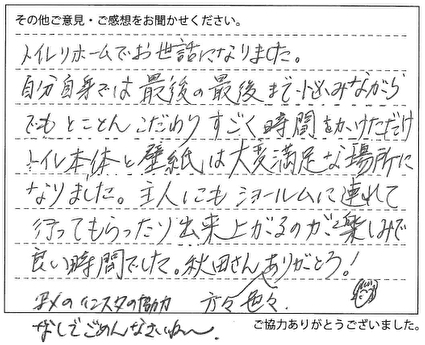 その他ご意見・ご感想をお聞かせください。
トイレリホームでお世話になりました。
自分自身では最後の最後まで悩みながら
でもとことんこだわりすごく時間をかけただけ
トイレ本体と壁紙は大変満足な場所に
なりました。主人にもショールムに連れて
行ってもらったり出来上がるのが楽しみで
良い時間でした。秋田さんありがとう!
のインスタの協力 方々 色々
なしでごめんなさいね〜
ご協力ありがとうございました。